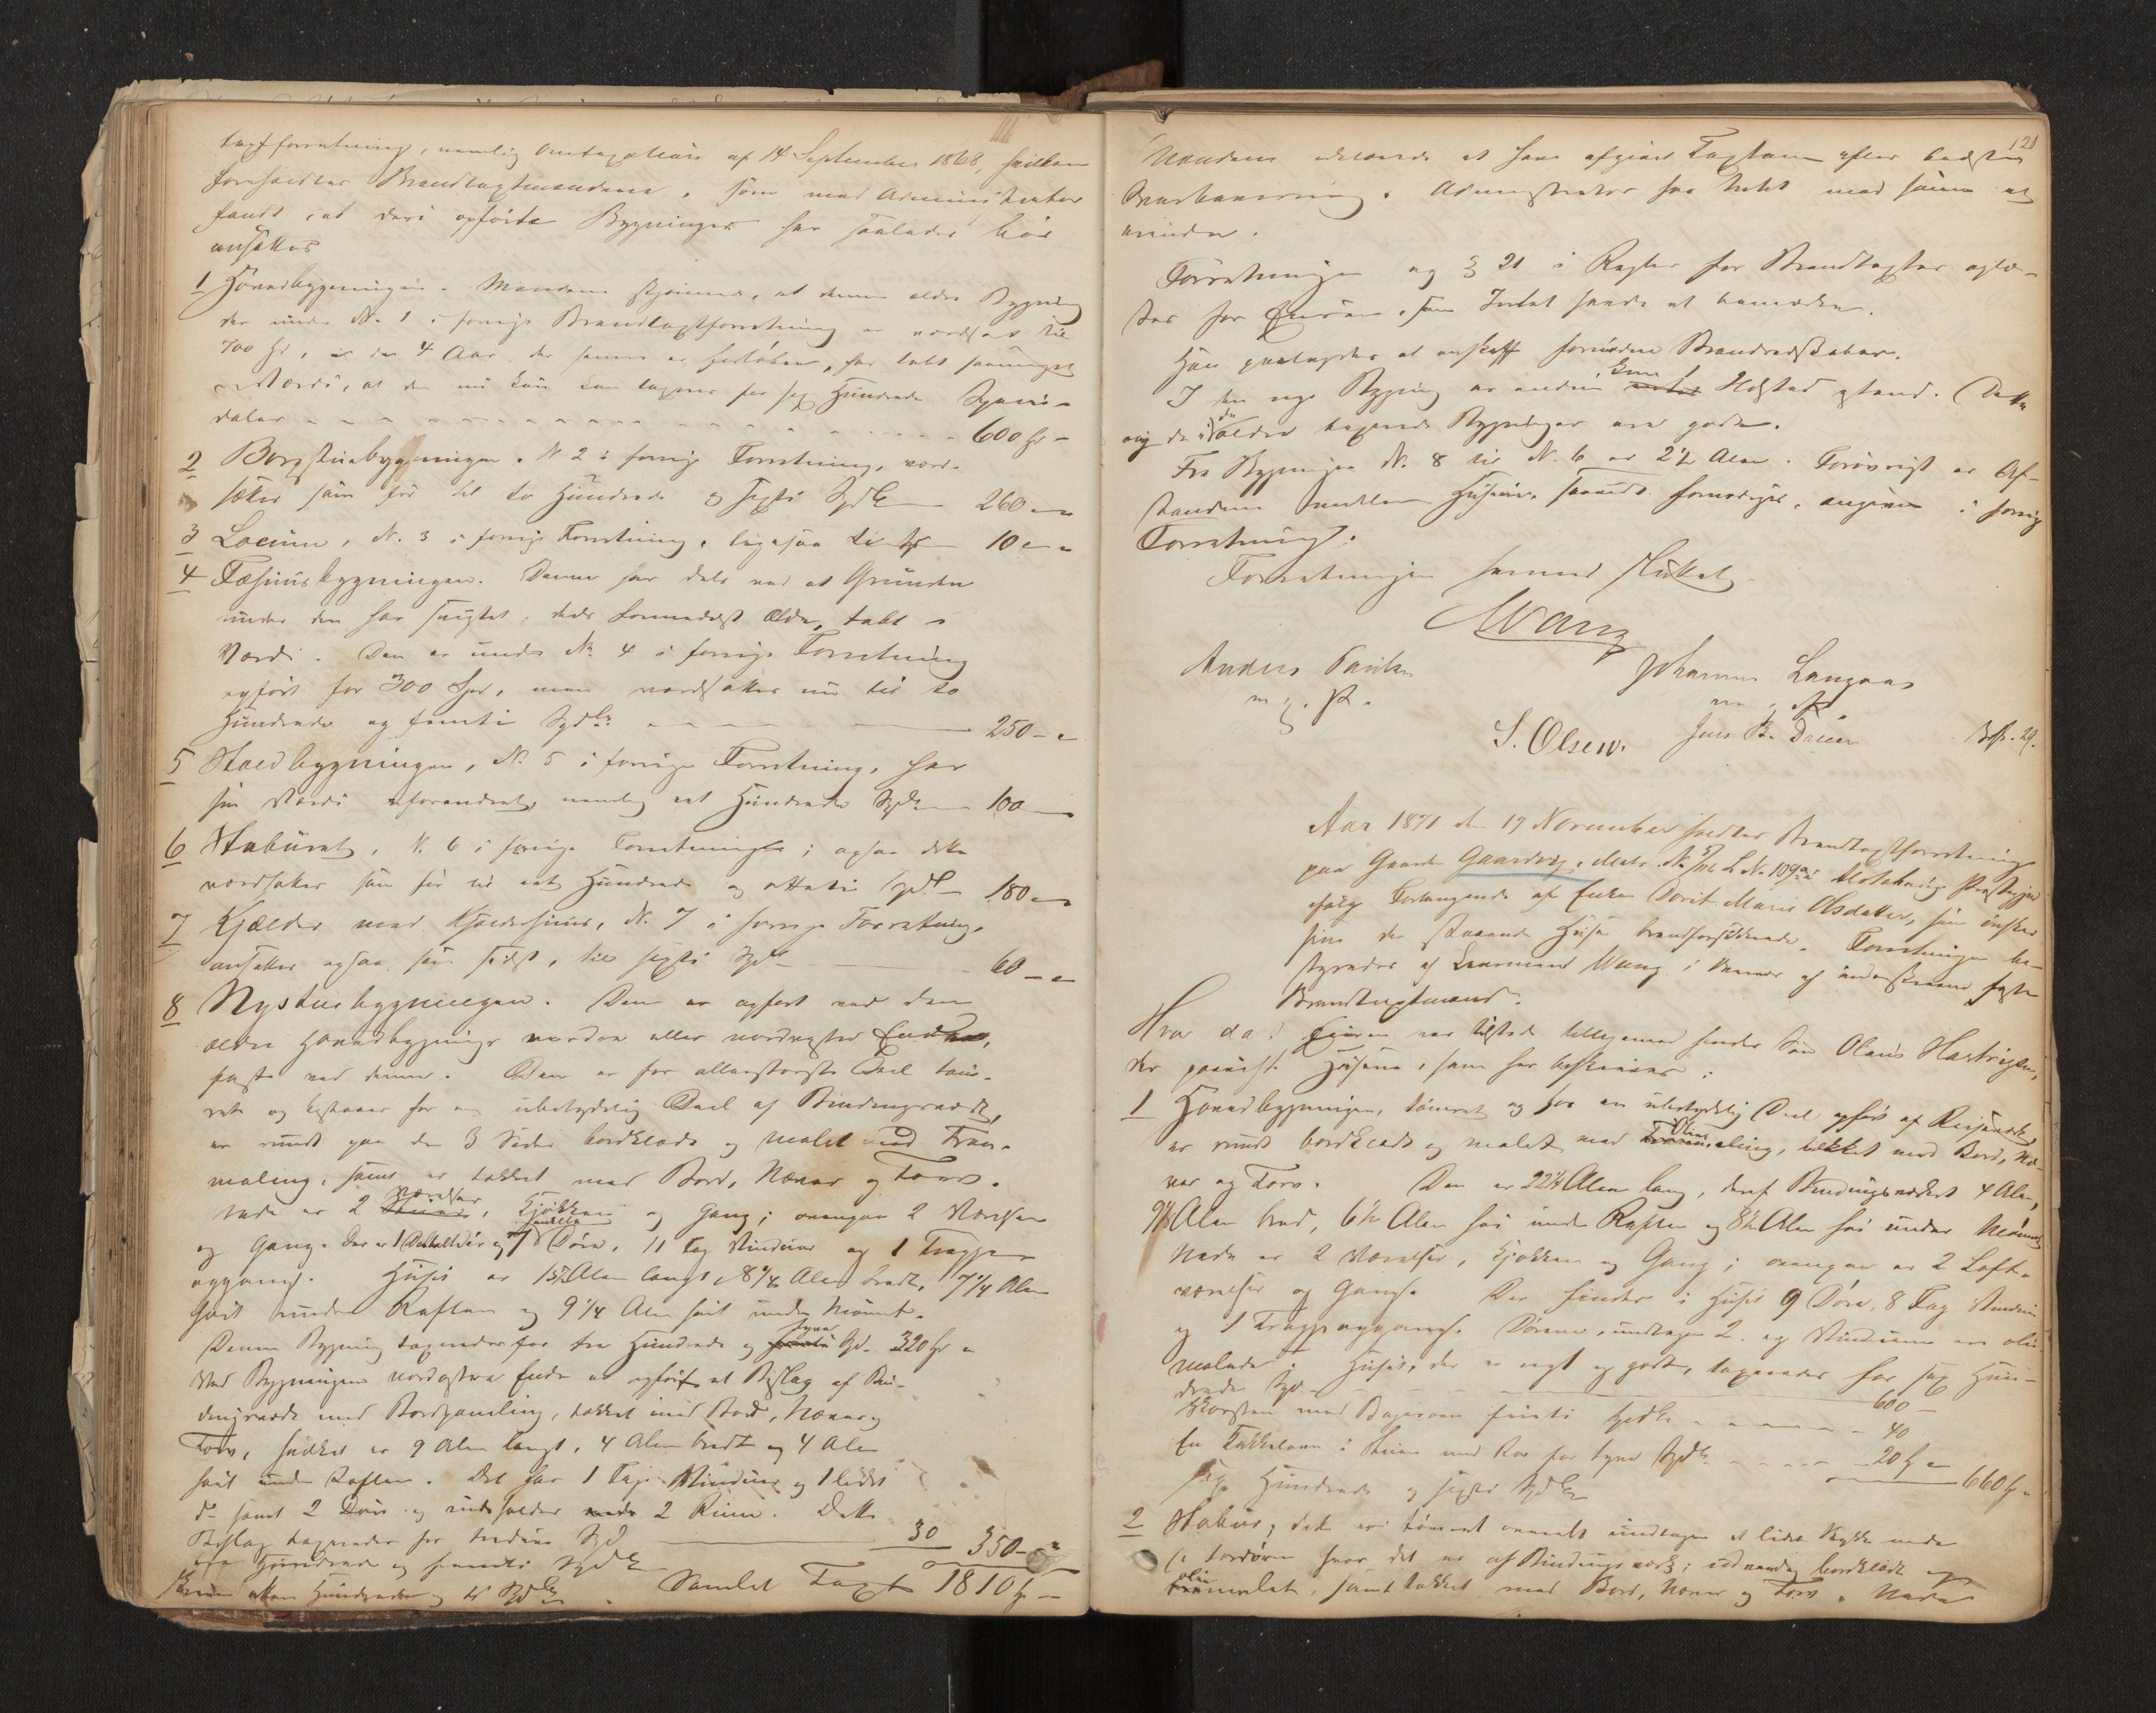 taxtforretning, nemlig Omtaxation af 14 September 1868, hvilken
foreholdtes Brandtaxtmændene, som med Administrator
fandt, at deri opførte Bygninger bør saaledes
ansættes
1 Hovedbygningen. Mændene skjønnede, at denne ældre Bygning
der under No. 1 i forrige Brandtaxtforretning er værdsat til
700 Spd, i de 4 Aar, der siden er forløbne, har tabt saameget
i Værdi, at den nu kun kan taxeres for sex Hundrede Species-
daler 600 Spd -
2 Borgstuebygningen. N 2 i forrige Forretning, værd-
sættes som før til to Hundrede og sexti Spdlr 260 - -
3 Locum, N. 3 i forrige Forretning, ligesaa ti Spd 10 - -
4 Fæhuusbygningen. Denne har dels ved at Grunden
under den har sviktet, dels formedelst Ælde, tabt i
Værdi. Den er under No. 4 i forrige Forretning
opført for 300 Spd, men værdsættes nu til to
Hundrede og femti Spdlr. 250 - -
5 Staldbygningen, N. 5 i forrige Forretning, har
sin Værdi uforandret, nemlig et Hundrede Spdlr 100 -
6 Staburet, N. 6 i forrige Forretning; ogsaa dette
værdsættes som før til et Hundrede og otteti Spdlr 180 - -
7 Kjælder med Kjælderhuus, N. 7 i forrige Forretning,
ansættes ogsaa som sidst, til sexti Spdlr 60 - -
8 Nystuebygningen. Den er opført ved den
ældre Hovedbygnings nordre eller nordvestre Ende,
fast ved denne. Den er for allerstørste Deel tøm-
ret og bestaaer for en ubetydelig Deel af Bindingsværk,
er rundt paa de 3 Sider bordklædt og malet med Tran-
maling, samt er tækket med Bord, Næver og Torv.
Nede er 2 Værelser, Kjøkken og Gang; ovenpaa 2 Værelser
og Gang. Der er 1 Dobbeltdør og 7 enkelte Døre, 11 Fag Vinduer og 1 Trappe-
opgang. Huset er 15 Alen langt, 8 3/4 Alen bredt, 7 1/4 Alen
høit under Raften og 9 1/4 Alen høit under Mønnet.
Denne Bygning taxeredes for tre Hundrede og tyve Spd. 320 Spd -
Ved Bygningens nordostre Ende er opført et Bislag af Bin-
dingsværk med Bordpaneling, tækket med Bord, Næver og
Torv, hvilket er 9 Alen langt, 4 Alen bredt og 4 Alen
høit under Raften. Det har 1 Fag Vinduer og 1 lidet
do samt 2 Døre og indeholder 2 Rum. Dette
Bislag taxeredes for tredive Spd 30 350 - -
tre Hundrede og femti Spdlr
Atten Hundrede og ti Spdlr. Samlet Taxt 1810 Spd -
121
Mændene erklærede at have afgivet Taxten efter bedste
Overbeviisning. Administrator har Intet mod samme at
erindre.
Forretningen og § 21 i Regler for Brandtaxter oplæ-
stes for Eieren, som Intet havde at bemærke.
Han paalagdes at anskaffe fornødne Brandredskaber.
I den nye Bygning er endnu Ildsted istand. Dette
og de i de ældre taxerede Bygninger ere gode.
Fra Bygningen N. 8 til N. 6 er 2 1/2 Alen. Forøvrigt er Af-
standene mellem Husene, saavidt fornødiges, angivne i forrige
Forretning.
Forretningen hermed sluttet
Wang
Anders Paulsen
m. g. P.
Johannes Langaas
m. g. P.
S. Olsen.
Jens B.
Aar 1871 den 17 November holdtes Brandtaxtforretning
paa Gaarden Gaardvig, Matr. N. L. N. 109a i Præstegjeld
ifølge Forlangende af Enken Dorit Marie Olsdatter, som ønsker
sine der staaende Huse brandforsikrede. Forretningen be-
styredes af Lensmand Wang i Nærvær af underskrevne faste
Brandtaxtmænd.
Hvor da! Eieren var tilstede tilligemed hendes Søn Olaus Hartvigsen,
der paaviste Husene, som her beskrives:
1 Hovedbygningen, tømret og for en ubetydelig Deel opført af Reisværk,
er rundt bordklædt og malet med Oliemaling, tækket med Bord, Næ-
ver og Torv. Den er 22 1/4 Alen lang, deraf Bindingsværket 4 Alen,
9 1/2 Alen bred, 6 1/2 Alen høi under Raften og 8 1/2 Alen høi under Mønnet.
Nede er 2 Værelser, Kjøkken og Gang; ovenpaa er 2 Loft-
værelser og Gang. Der findes i Huset 9 Døre, 8 Fag Vinduer
og 1 Trappeopgang. Dørene, undtagen 2, og Vinduerne ere olie-
malede. Huset, der er nyt og godt, taxeredes for sex Hun-
drede Spd. 600 -
Skorsten med Bagerovn firti Spdlr 40
En Kakkelovn i Stuen med Rør for tyve Spdlr. 20 Spd -
sex Hundrede og sexti Spdlr 660 Spd -
2 Stabur, dette er tømret overalt undtagen et lidet Stykke nede
ved Fordøren hvor det er af Bindingsværk; udvendig bordklædt og
oliemalet, samt tækket med Bord, Næver og Torv. Nede